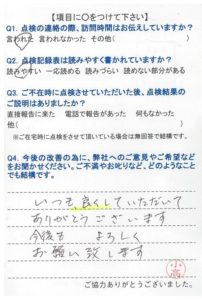 【項目に○をつけて下さい】
Q1. 点検の連絡の際、訪問時間はお伝えしていますか？
言われた 言われなかった その他（　　　）
Q2. 点検記録表は読みやすく書かれていますか？
読みやすい 一応読める 読みづらい 読めない部分がある
Q3. ご不在時に点検させていただいた後、点検結果の
ご説明はありましたか？
直接報告に来た 電話で報告があった 何もなかった
他（　　　）
※ご在宅時に点検をさせて頂いている場合は無回答で結構です。
Q4. 今後の改善の為に、弊社へのご意見やご希望など
をお聞かせください。ご不満やお叱りなど、どのようなこと
でも結構です。
いつも良くしていただいて
ありがとうございます
今後も よろしく
お願い致します
ご協力ありがとうございました。